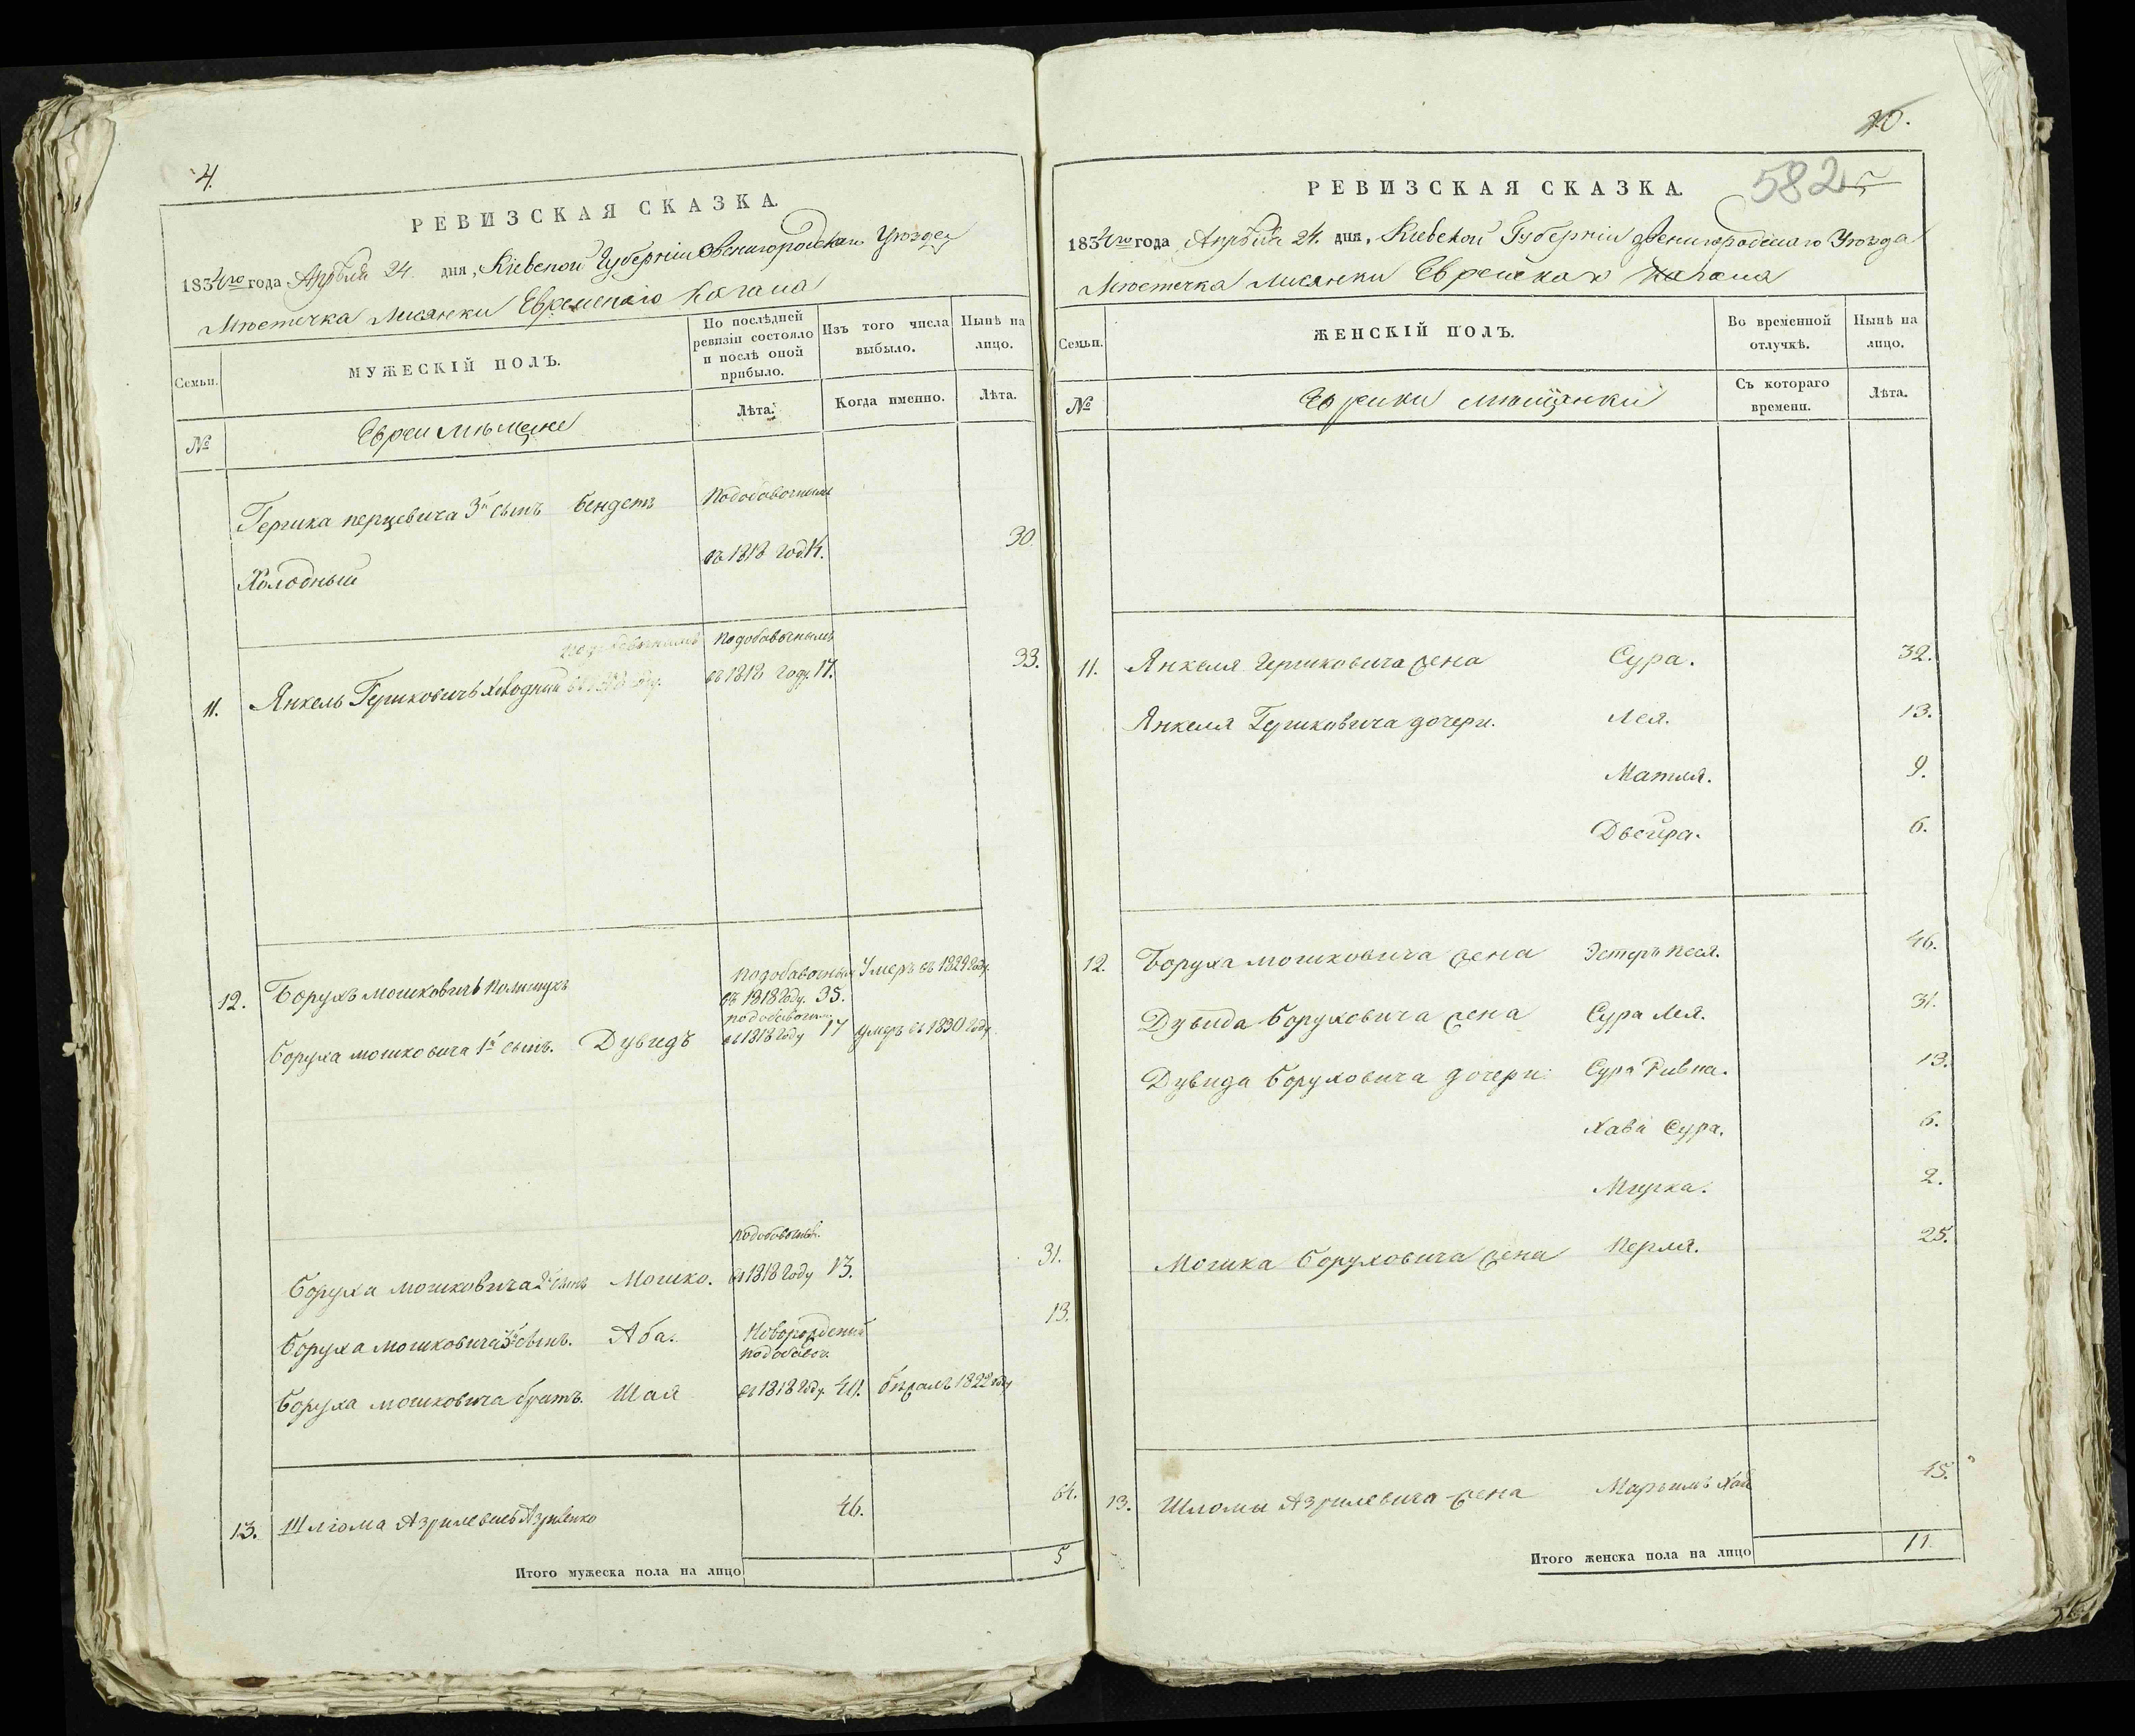 4.
РЕВИЗСКАЯ СКАЗКА.
1834го года Апрѣля 24. дня, Кіевской Губерніи Звенигородскаго Уѣзда
Мѣстечка Лисянки Еврейскаго Кагала
Семьи.
МУЖЕСКІЙ ПОЛЪ.
По послѣдней ревизіи состояло и послѣ оной прибыло.
Изъ того числа выбыло.
Нынѣ на лицо.
№
Евреи Мѣщане
Лѣта.
Когда именно.
Лѣта.
Гершка перцевича 3й сынъ Бендетъ Подобавочнымъ
Холодный въ 1818 год. 14. 30.
Подобавочнымъ
11. Янкель Гершковичъ Холодный въ 1818 году 17. 33.
Подобавочнымъ Умеръ въ 1829 году.
12. Борухъ Мошковичъ Полищукъ въ 1818 году. 35.
подобавочнымъ
Боруха мошковича 1й сынъ. Дувидъ въ 1818 году 17 умеръ въ 1830 году.
подобавочнымъ.
Боруха мошковича 2й сынъ Мошко. въ 1818 году 13. 31.
Боруха мошковича 3й сынъ. Аба. Новорожденный 13.
подобавоч.
Боруха мошковича братъ. Шая въ 1818 году. 40. бѣжалъ 1822 году
13. Шлома Азрилевичъ 46. 64.
Итого мужеска пола на лицо 5
20.
РЕВИЗСКАЯ СКАЗКА.
582
1834го года Апрѣля 24. дня, Кіевской Губерніи Звенигородскаго Уѣзда
Мѣстечка Лисянки Еврейскаго Кагала
Семьи.
ЖЕНСКІЙ ПОЛЪ.
Во временной отлучкѣ.
Нынѣ на лицо.
№
Еврейки мѣщанки
Съ котораго времени.
Лѣта.
11. Янкеля Гершковича жена Сура. 32.
Янкеля Гершковича дочери. Лея. 13.
Матля. 9.
Двейра. 6.
12. Боруха мошковича жена Эстеръ Песя. 46.
Дувида Боруховича жена Сура Лея. 31.
Дувида Боруховича дочери: Сура Ривка. 13.
Хава Сура. 6.
Мирка. 2.
Мошка Боруховича жена Перля. 25.
13. Шломы Азрилевича жена Марьимъ Хая 45.
Итого женска пола на лицо 11.